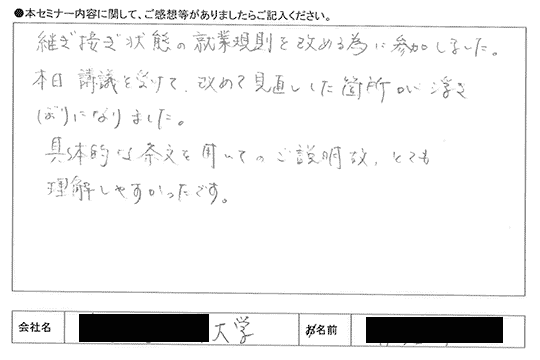 ●本セミナー内容に関して、ご感想等がありましたらご記入ください。
継ぎ接ぎ状態の就業規則を改める為に参加しました。
本日講議を受けて、改めて見直しした箇所が浮き
ぼりになりました。
具体的な条文を用いてのご説明故、とても
理解しやすかったです。
会社名 大学 お名前